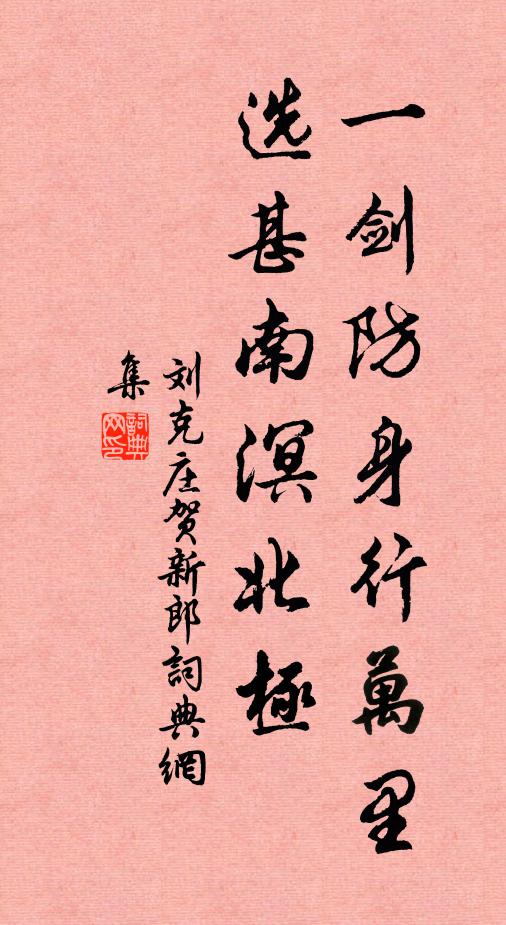 一剑防身行萬里
选甚南溟北極
刘克庄贺新郎詞典網
集
詞典网印